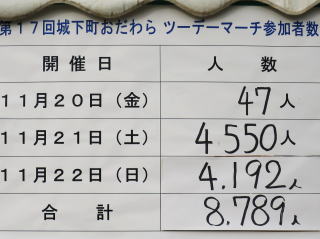 第17回城下町おだわら ツーデーマーチ参加者数
開催日 人数
11月20日(金) 47人
11月21日(土) 4550人
11月22日(日) 4.192人
合計 8.789人